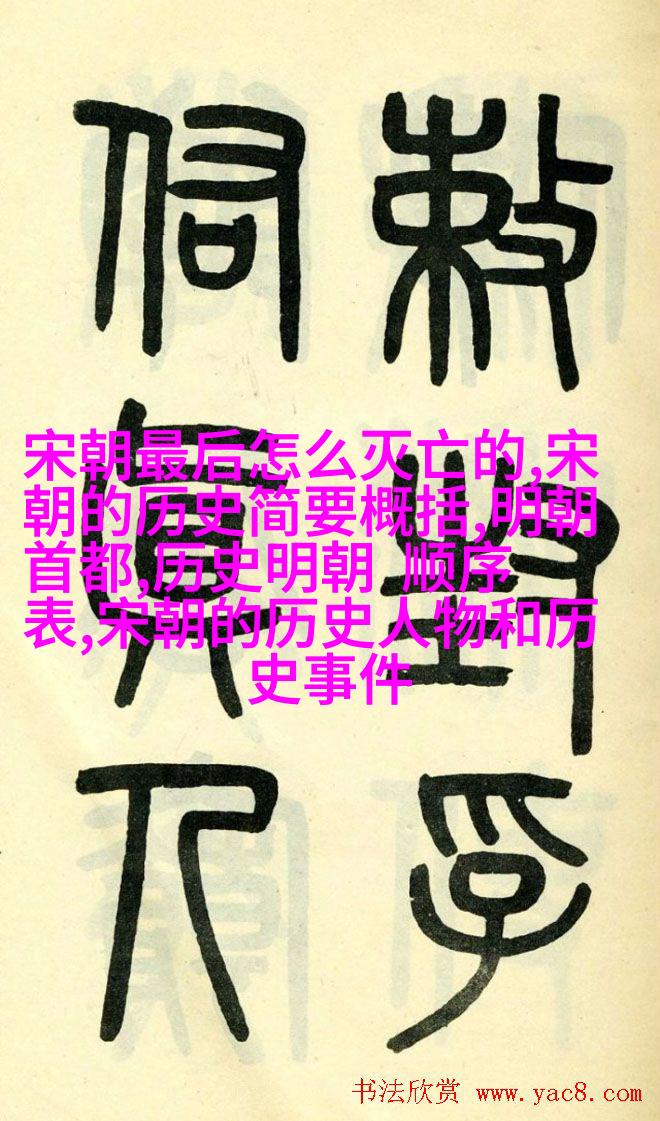 敕封孚
佑眞人
宋朝最后怎么灭亡的,宋
朝的历史简要概括,明朝
首都,历史明朝 顺序
表,宋朝的历史人物和历
史事件
书法欣赏 www.yac8.com